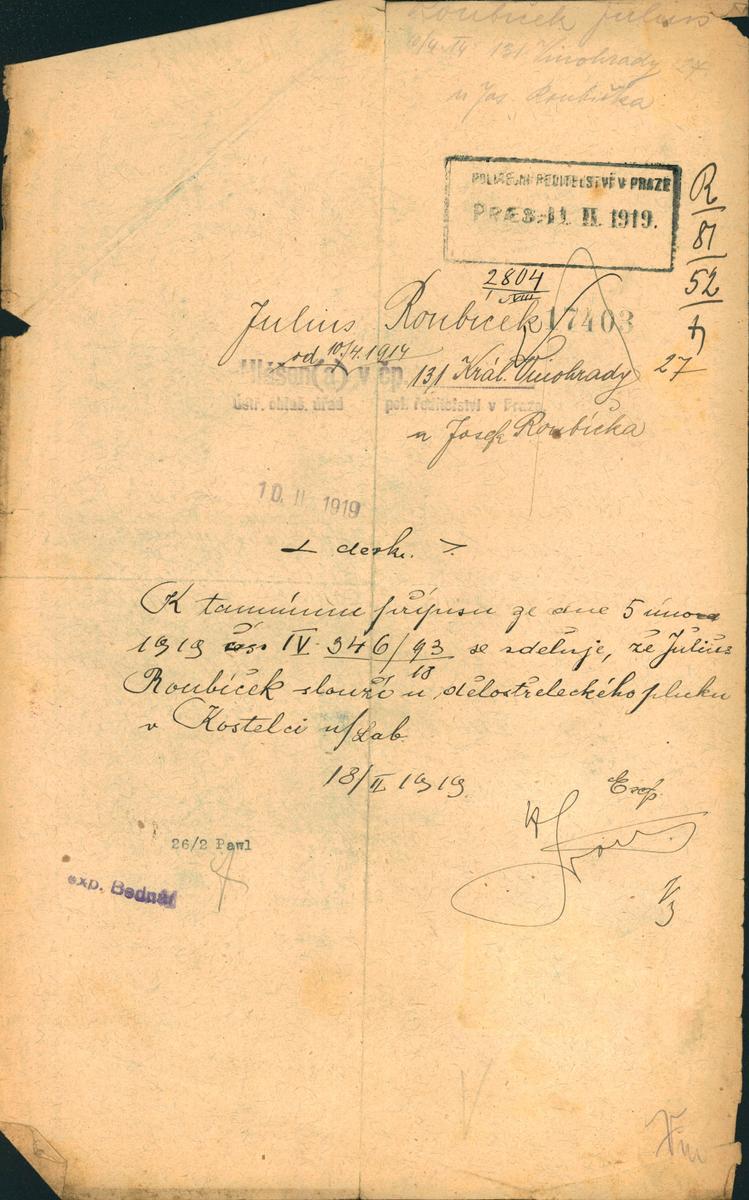 Roubíček Julius
10/4 14 131 Vinohrady 27
u Jos. Roubíčka
POLICEJNÍ ŘEDITELSTVÍ V PRAZE
PRÆS. 11. II. 1919.
R
81
52
2804
I XVIII
Julius Roubíček 17403
od 10/4.1914
Hlášen(a) v čp. 131 Král. Vinohrady 27
ústř. ohlaš. úřad pol. ředitelství v Praze
u Josefa Roubíčka
10 II 1919
K tamnímu přípisu ze dne 5 února
1919 čís IV 346/93 se sděluje, že Julius
18
Roubíček slouží u dělostřeleckého pluku
v Kostelci n/Lab.
18/II 1919
Exp.
26/2 Pawl
exp. Bednář
1/3